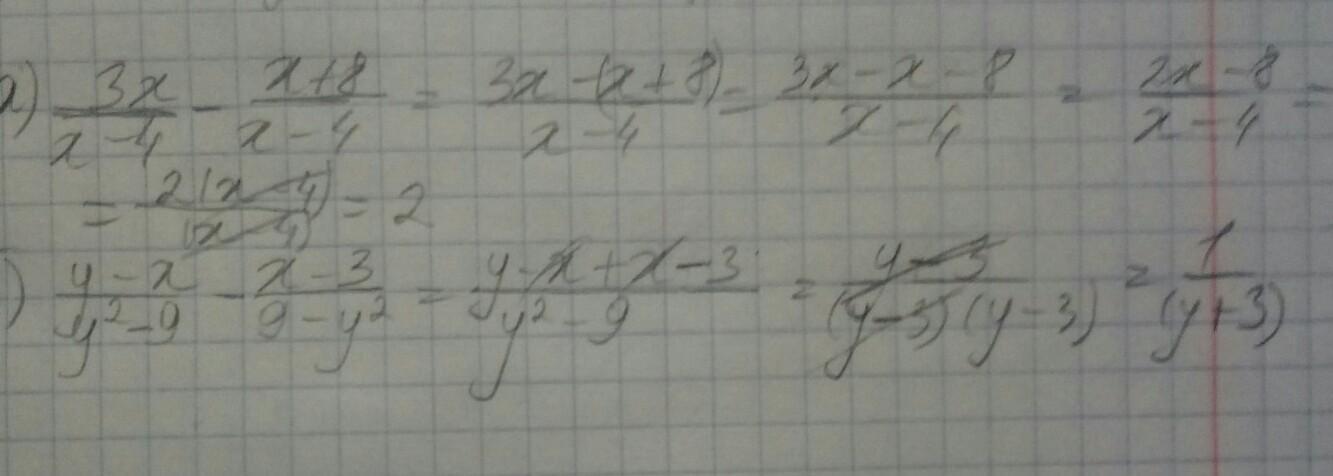 а) 3x/(x-4) - (x+8)/(x-4) = (3x-(x+8))/(x-4) = (3x-x-8)/(x-4) = (2x-8)/(x-4) =
= 2(x-4)/(x-4) = 2
) (y-x)/(y²-9) - (x-3)/(9-y²) = (y-x+x-3)/(y²-9) = (y-3)/((y-3)(y-3)) = 1/(y+3)